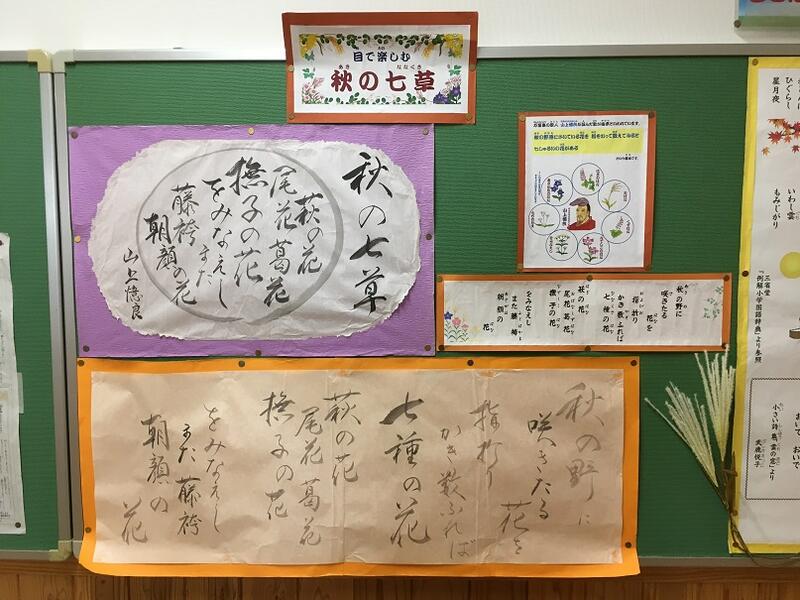 目で楽しむ
秋の七草
秋の七草
萩の花
尾花葛花
撫子の花
をみなえし
また
藤袴
朝顔の花
山上憶良
秋の野に
咲きたる
花を
指折り
かき数ふれば
七種の花
萩の花
尾花葛花
撫子の花
をみなえし
また藤袴
朝顔の
花
秋の野に
咲きたる
花を
指折り
かき数ふれば
七種の花
萩の花
尾花葛花
撫子の花
をみなえし
また藤袴
朝顔の
花
ひぐらし
星月夜
いわし雲
もみじがり
三省堂
「例解小学国語辞典」より参照
おいで、おいで